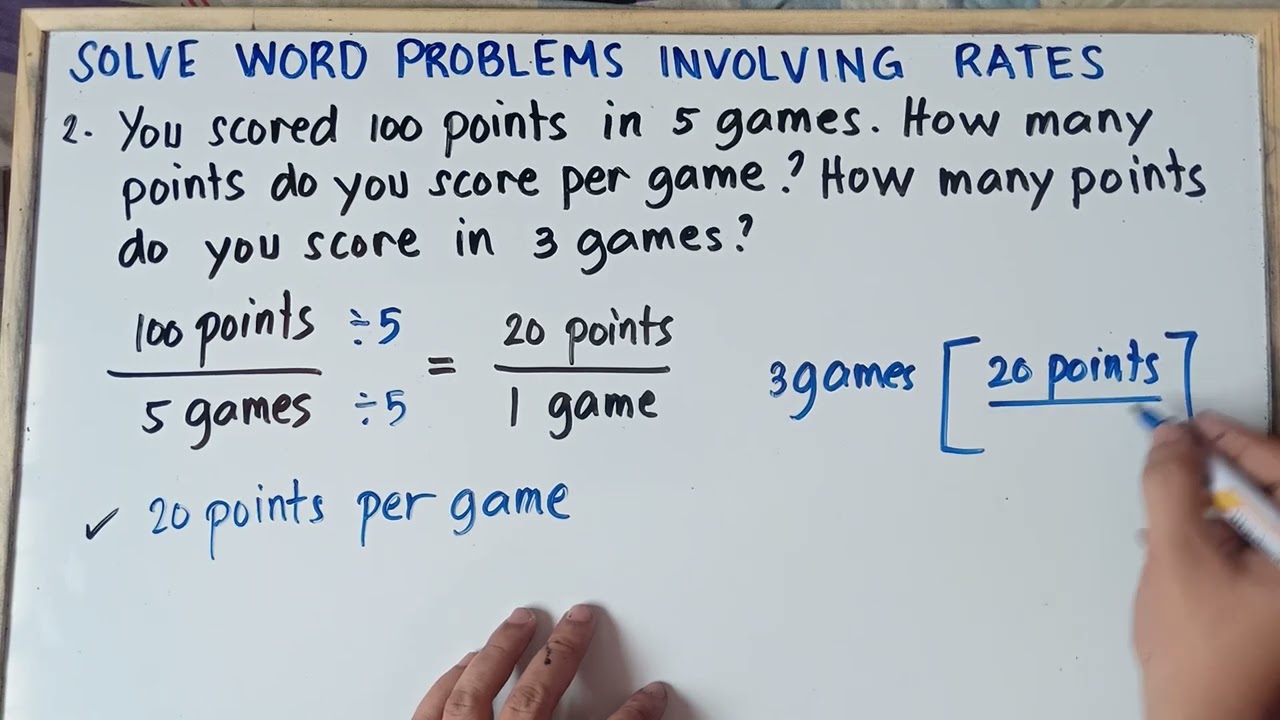 SOLVE WORD PROBLEMS INVOLVING RATES
2. You scored 100 points in 5 games. How many
points do you score per game? How many points
do you score in 3 games?
100 points ÷5 = 20 points
5 games ÷5 1 game
3games [ 20 points ]
✓ 20 points per game